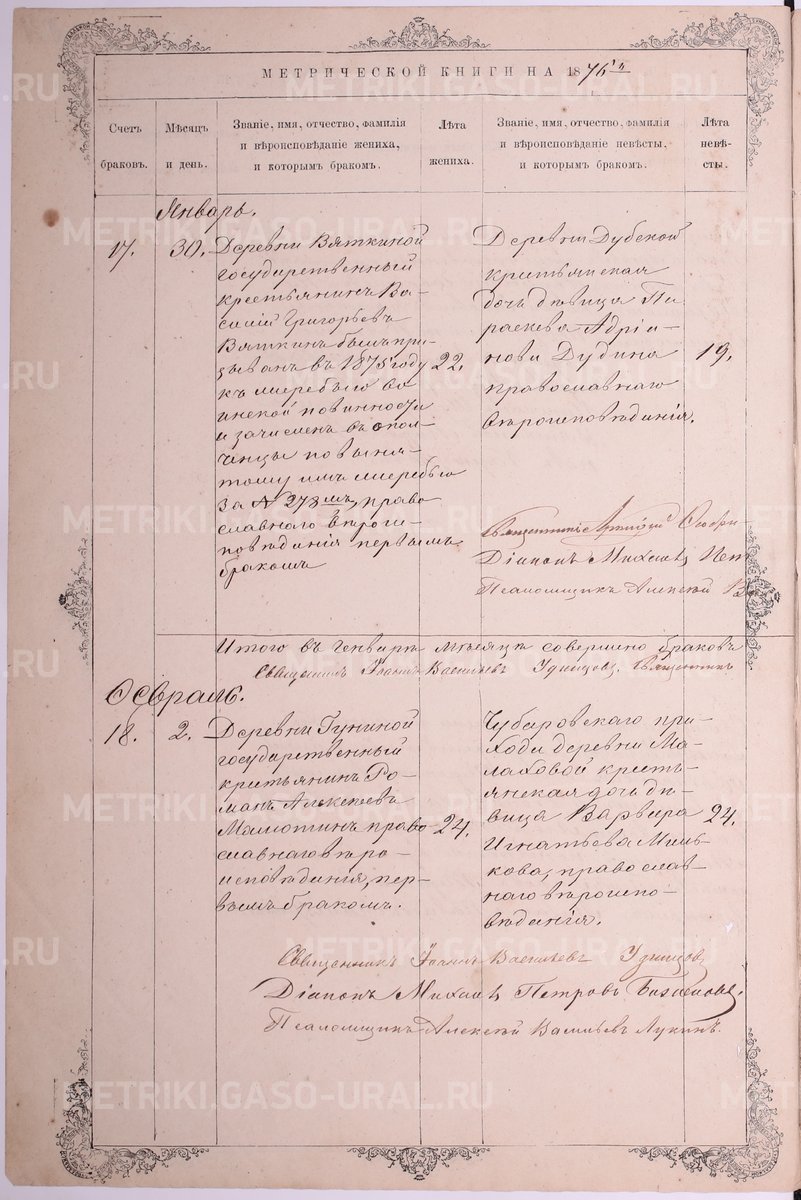 МЕТРИЧЕСКОЙ КНИГИ НА 1876
Счетъ браковъ.
Мѣсяцъ и день.
Званіе, имя, отчество, фамилія
и вѣроисповѣданіе жениха,
и которымъ бракомъ.
Лѣта жениха.
Званіе, имя, отчество, фамилія
и вѣроисповѣданіе невѣсты,
и которымъ бракомъ.
Лѣта невѣ-
сты.
Январь.
17.
30.
Деревни Вяткиной
государственный
крестьянинъ Ва-
силій Григорьевъ
Вяткинъ былъ при-
зыванъ въ 1875 году
къ жеребью во
инской повинности
и зачисленъ въ опол-
ченцы по выня-
тому имъ жеребью
за № 278 мъ, право
славнаго вѣроис-
повѣданія первымъ
бракомъ
22.
Деревни Дубской
крестьянская
дочь дѣвица Па
раскева Адріа-
нова Дудина
православнаго
вѣроисповѣданія.
19.
Священникъ
Діаконъ Михаилъ Пет
Псаломщикъ Алексѣй В
Итого въ Генварѣ мѣсяцѣ совершено браковъ
Священникъ Іоаннъ Васильевъ Удинцовъ, Священникъ
Февраль.
18.
2.
Деревни Гуниной
государственный
крестьянинъ Ро-
манъ Алексѣевъ
Мамотинъ право
славнаго вѣро-
исповѣданія, пер-
вымъ бракомъ.
24.
Чубаровскаго при-
хода деревни Ма-
лаховой кресть-
янская дочь дѣ-
вица Варвара
Игнатьева Миль-
кова, православ-
наго вѣроиспо-
вѣданія.
24.
Священникъ Іоаннъ Васильевъ Удинцовъ
Діаконъ Михаилъ Петровъ Баженовъ.
Псаломщикъ Алексѣй Васильевъ Лукинъ.
METRIKI.GASO-URAL.RU